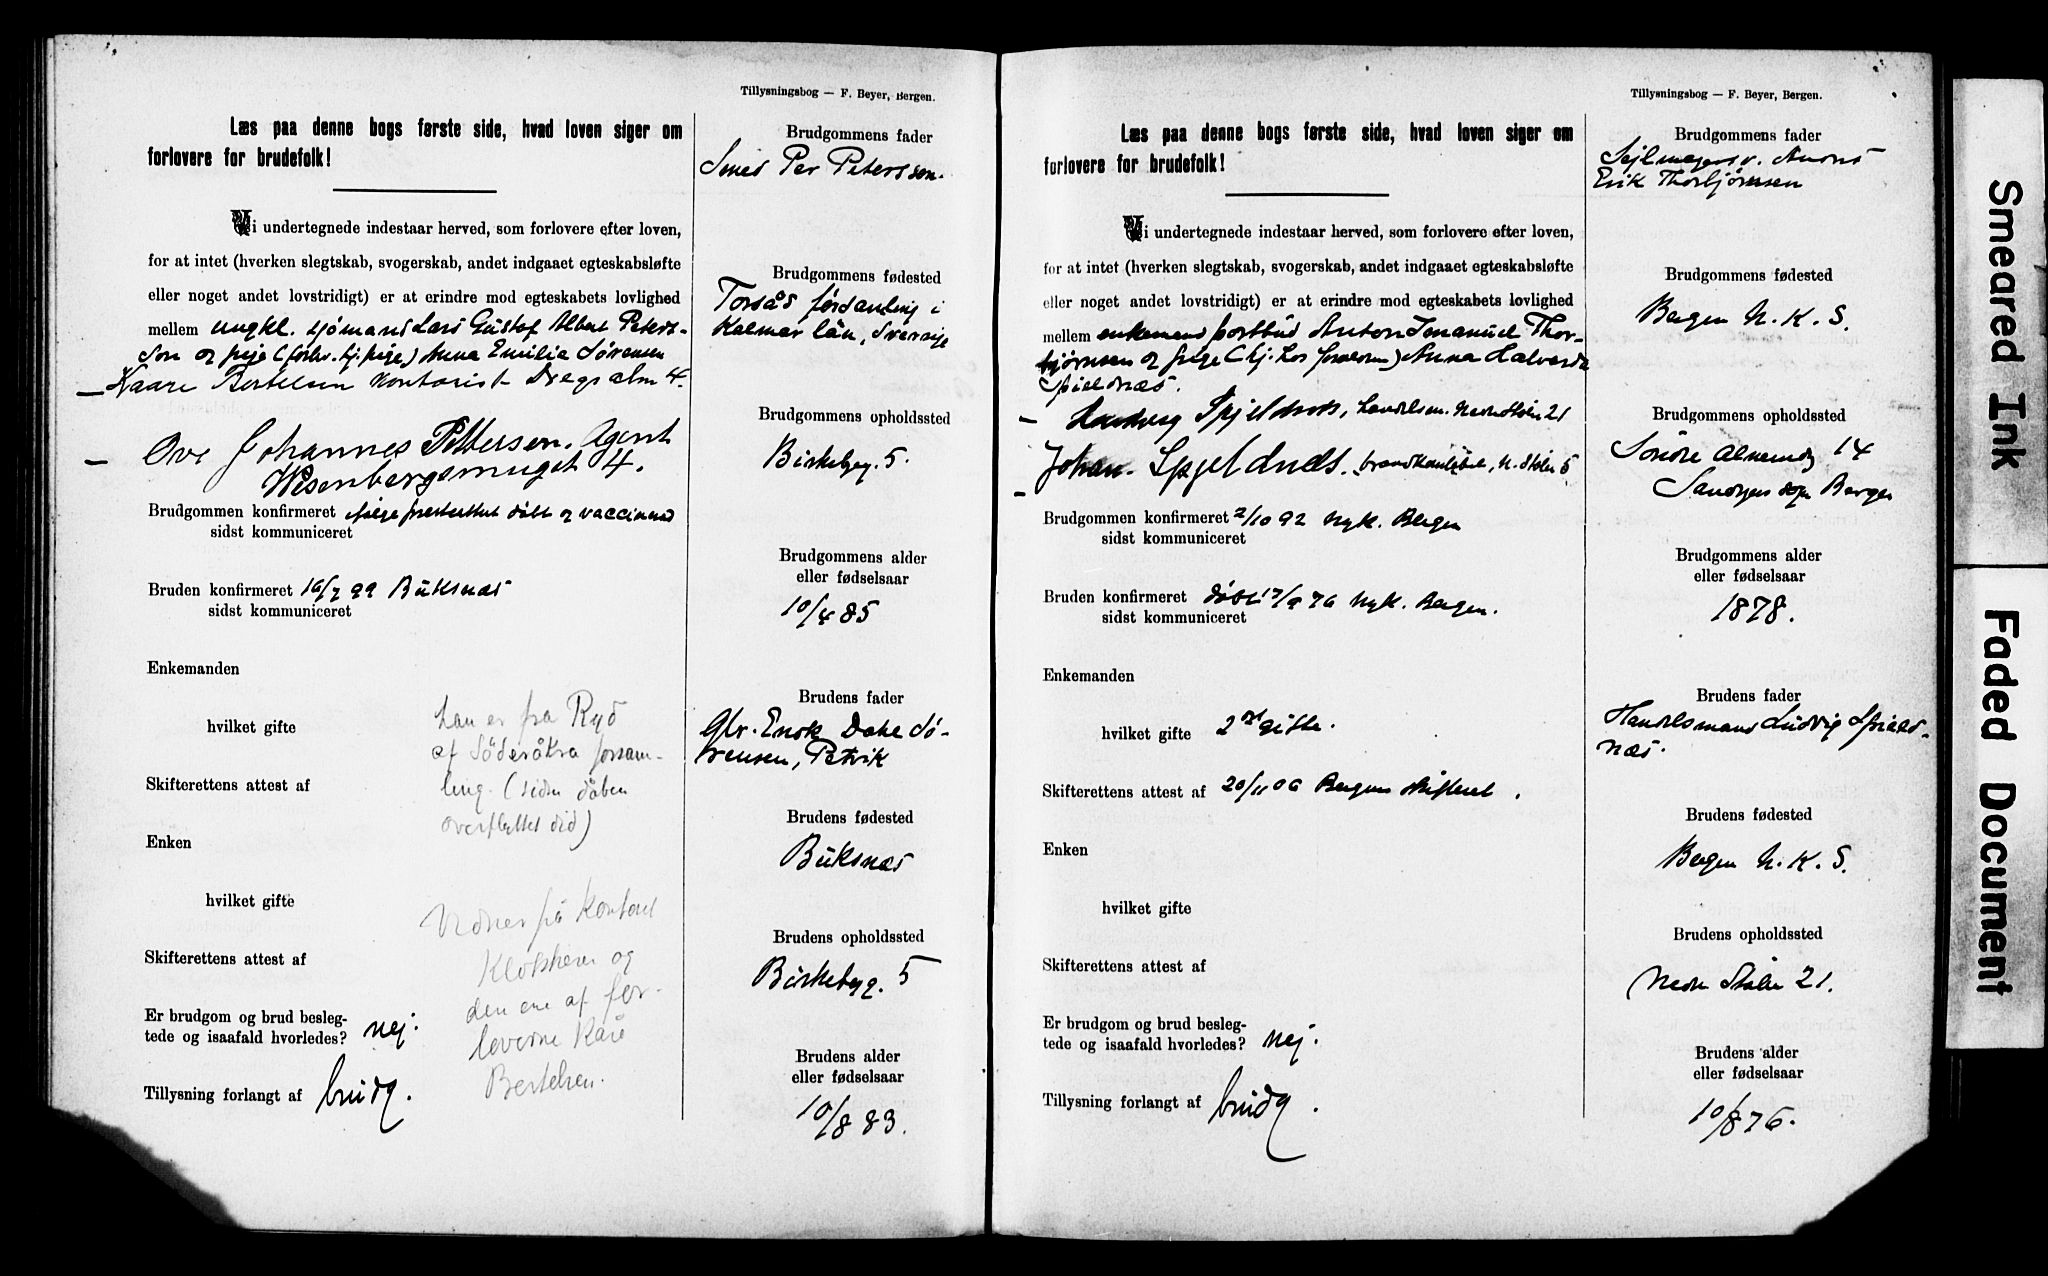 Tillysningsbog — F. Beyer, Bergen.
Læs paa denne bogs første side, hvad loven siger om
forlovere for brudefolk!
Vi undertegnede indestaar herved, som forlovere efter loven,
for at intet (hverken slegtskab, svogerskab, andet indgaaet egteskabsløfte
eller noget andet lovstridigt) er at erindre mod egteskabets lovlighed
mellem ungkl. sjømand Lars Gustof Albert Peters-
son og pige (forhv. tj. pige) Anna Emilie Sørensen
Kaare Bertelsen kontorist Dregsalm 4.
Ove Johannes Pettersen. Agent
Wesenbergsmuget 4.
Brudgommen konfirmeret ifølge presteattest døbt og vaccinered
sidst kommuniceret
Bruden konfirmeret 16/7 99 Buksnæs
sidst kommuniceret
Enkemanden
hvilket gifte
han er fra Ryd
af Söderåkra forsam-
ling. (siden dåben
overflyttet did)
Skifterettens attest af
Enken
hvilket gifte
Vidner på kontoret
Klokkeren og
den ene af for-
loverne Kåre
Bertelsen.
Skifterettens attest af
Er brudgom og brud besleg-
tede og isaafald hvorledes? nej.
Tillysning forlangt af brudg.
Brudgommens fader
Smed Per Petersson.
Brudgommens fødested
Torsås församling i
Kalmar län, Sverige
Brudgommens opholdssted
Birkebeg. 5.
Brudgommens alder
eller fødselsaar
10/4 85
Brudens fader
Gbr. Enok Dahl Sø-
rensen, Petvik
Brudens fødested
Buksnæs
Brudens opholdssted
Birkebeg. 5
Brudens alder
eller fødselsaar
10/8 83.
Tillysningsbog — F. Beyer, Bergen.
Læs paa denne bogs første side, hvad loven siger om
forlovere for brudefolk!
Vi undertegnede indestaar herved, som forlovere efter loven,
for at intet (hverken slegtskab, svogerskab, andet indgaaet egteskabsløfte
eller noget andet lovstridigt) er at erindre mod egteskabets lovlighed
mellem enkemand postbud Anton Imanuel Thor-
bjørnsen og pige (hj. hos forældrene) Anna Halvarda
Spieldnæs.
Ludvig Spjeldnæs, handelsm. Nedre Stølen 21
Johan. Spjeldnæs. brandkonstabel, N. Stølen 5
Brudgommen konfirmeret 2/10 92 Nyk. Bergen
sidst kommuniceret
Bruden konfirmeret døbt 17/9 76 Nyk. Bergen.
sidst kommuniceret
Enkemanden
hvilket gifte 2det gifte.
Skifterettens attest af 20/11 06 Bergens skifteret.
Enken
hvilket gifte
Skifterettens attest af
Er brudgom og brud besleg-
tede og isaafald hvorledes? nej.
Tillysning forlangt af brudg.
Brudgommens fader
Sejlmagersv.
Erik Thorbjørnsen
Brudgommens fødested
Bergen N. K. S.
Brudgommens opholdssted
Søndre Almendg 14
Sandvigens sogn Bergen
Brudgommens alder
eller fødselsaar
1878.
Brudens fader
Handelsmand Ludvig Spield-
næs.
Brudens fødested
Bergen N. K. S.
Brudens opholdssted
Nedre Stølen 21.
Brudens alder
eller fødselsaar
10/8 76.
Smeared Ink
Faded Document